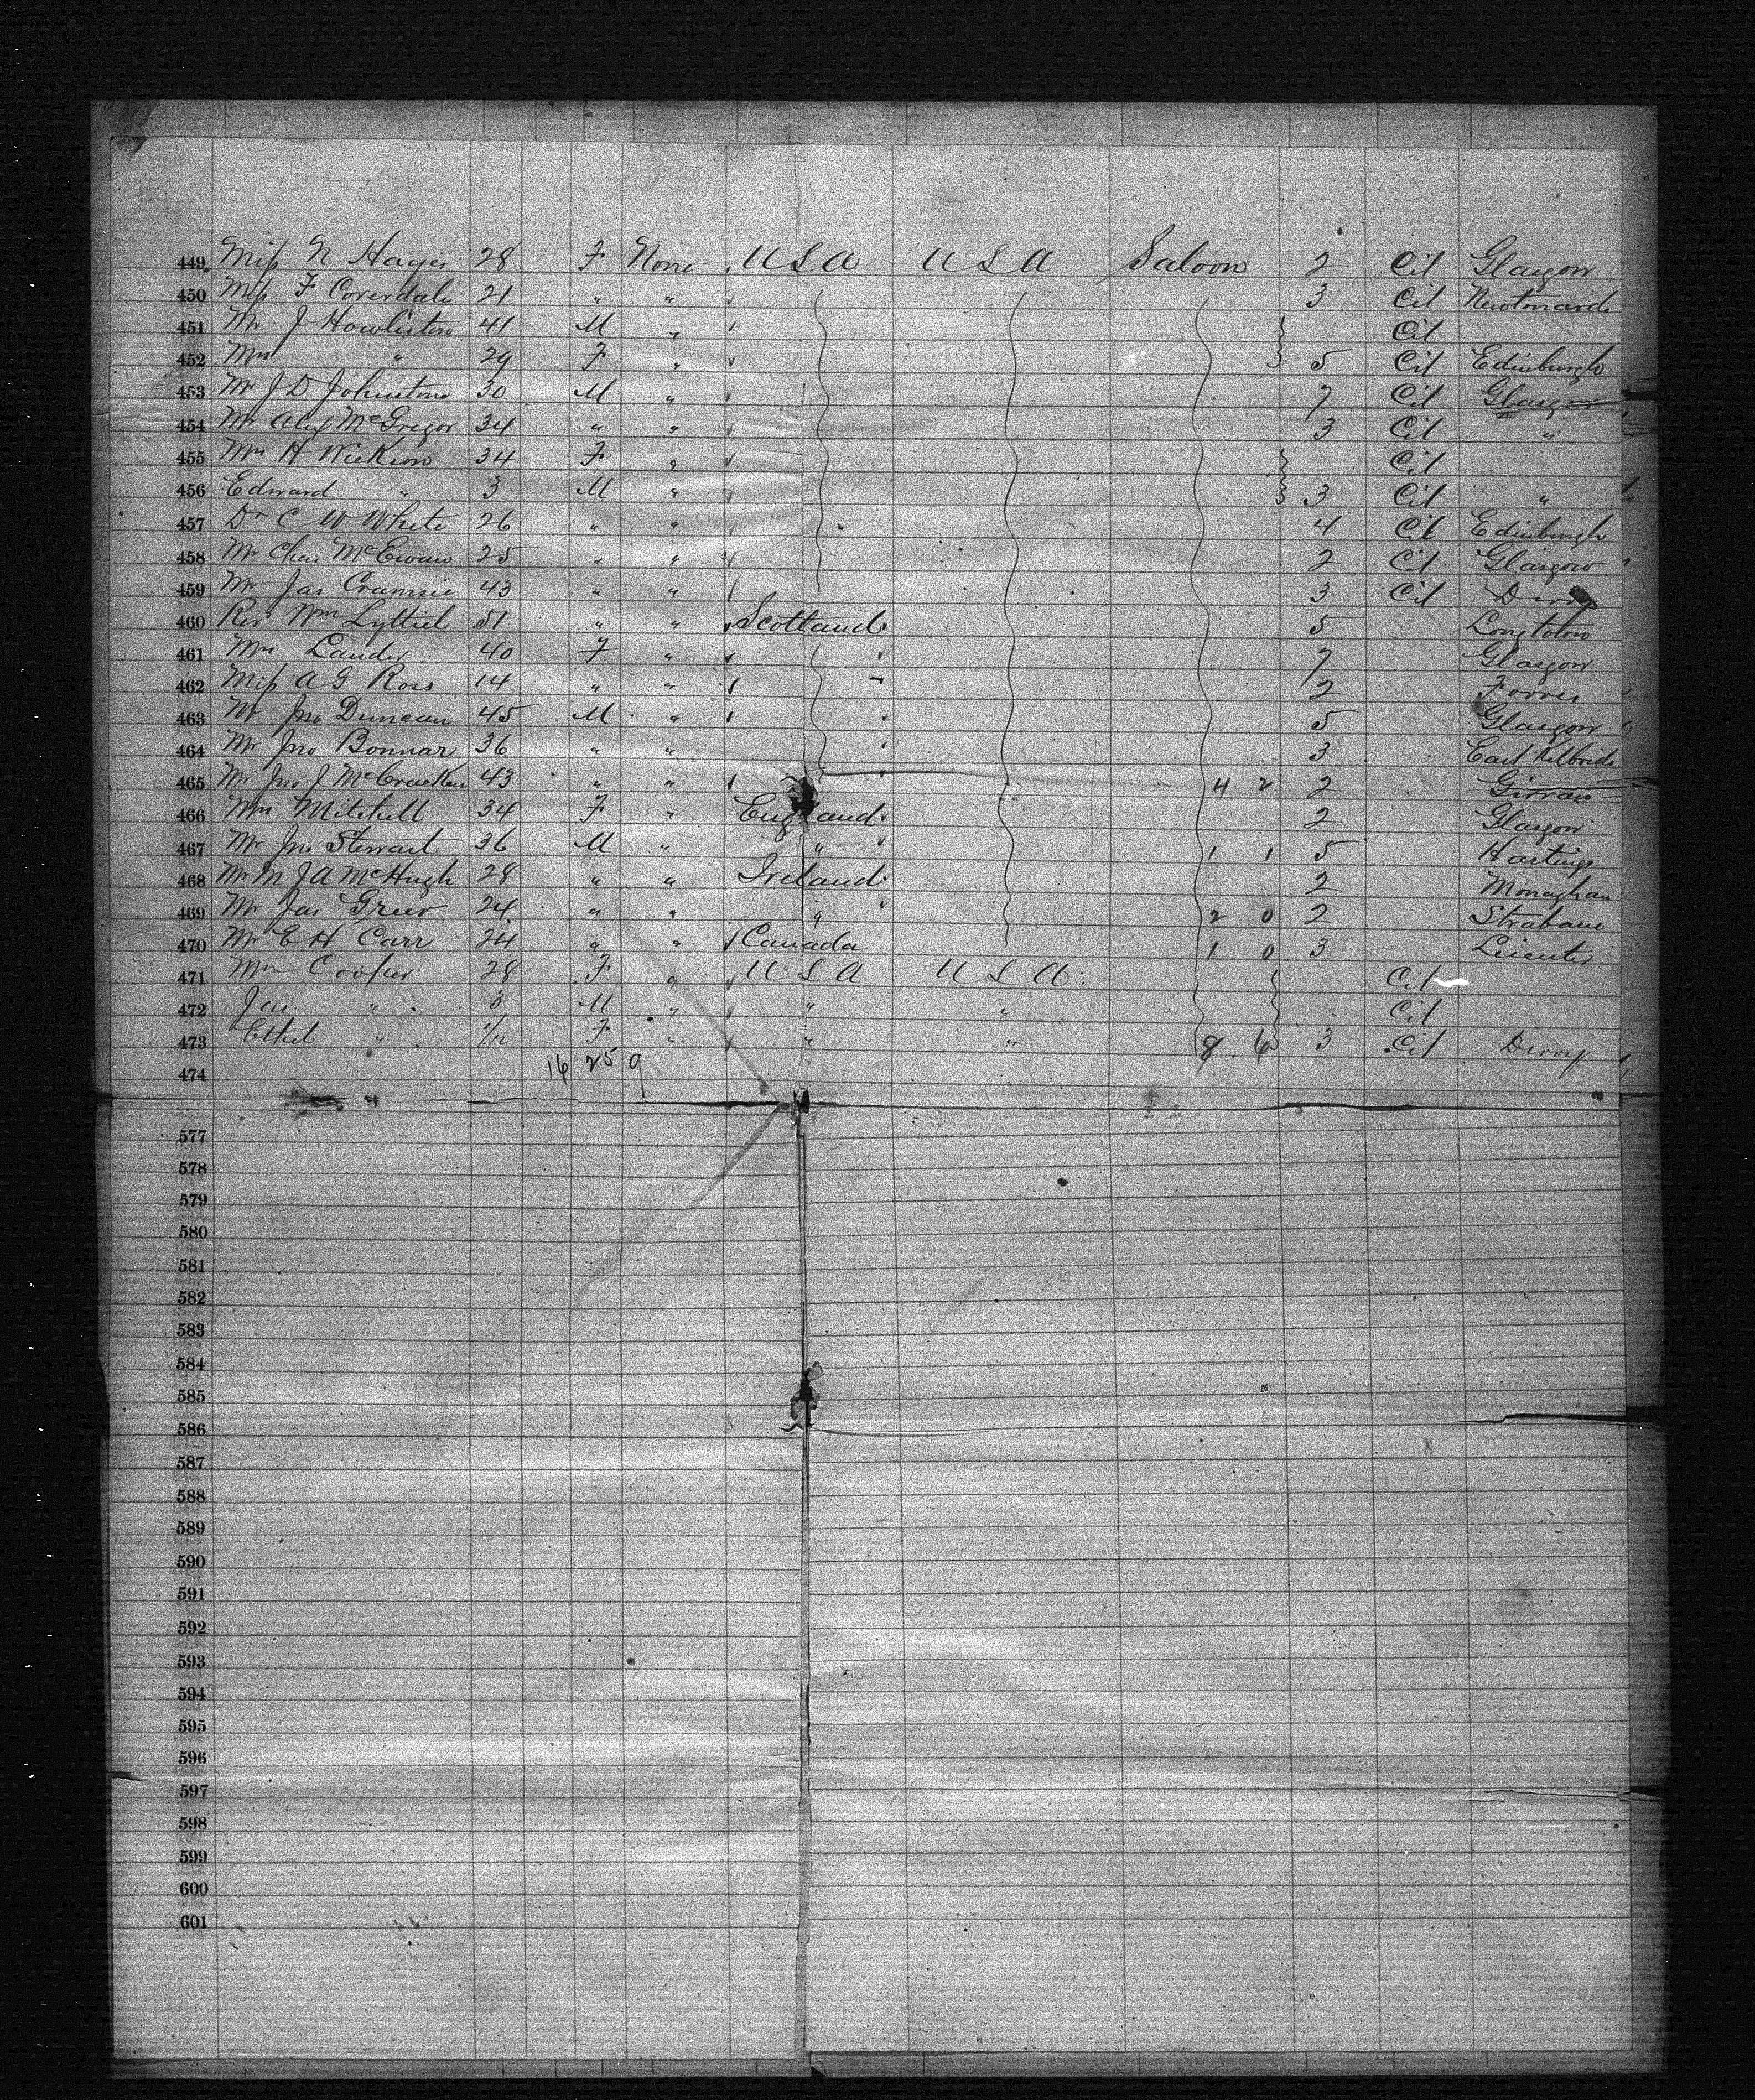 449 Miss N Hayes 28 F None USA USA Saloon 2 Cit Glasgow
450 Miss F Coverdale 21 " " 3 Cit Newtonards
451 Mr J Howliston 41 M " Cit
452 Mrs " 29 F " 5 Cit Edinburgh
453 Mr J D Johnstone 30 M " 7 Cit Glasgow
454 Mr Alex McGregor 34 " " 3 Cit "
455 Mrs H Nickson 34 F " Cit
456 Edward " 3 M " 3 Cit "
457 Dr C W White 26 " " 4 Cit Edinburgh
458 Mr Chas McEwan 25 " " 2 Cit Glasgow
459 Mr Jas Cramsie 43 " " 3 Cit Derry
460 Rev Wm Lyttiel 51 " " Scotland 5
461 Mrs Lauder 40 F " 7 Glasgow
462 Miss A G Ross 14 " " 2 Forres
463 Mr Jno Duncan 45 M " 5 Glasgow
464 Mr Jno Bonnar 36 " " 3 East Kilbride
465 Mr Jno J McCracken 43 " " 4 2 2 Girvan
466 Mrs Mitchell 34 F " England 2 Glasgow
467 Mr Jno Stewart 36 M " " 1 1 5 Hastings
468 Mr M J A McHugh 28 " " Ireland 2 Monaghan
469 Mr Jas Greer 24 " " " 2 0 2 Strabane
470 Mr E H Carr 24 " " Canada 1 0 3 Leicester
471 Mrs Cooper 28 F " USA USA Cit
472 Jas " 3 M " " " Cit
473 Ethel " 1/12 F " " " 8 6 3 Cit Derry
474 16 25 9
577
578
579
580
581
582
583
584
585
586
587
588
589
590
591
592
593
594
595
596
597
598
599
600
601